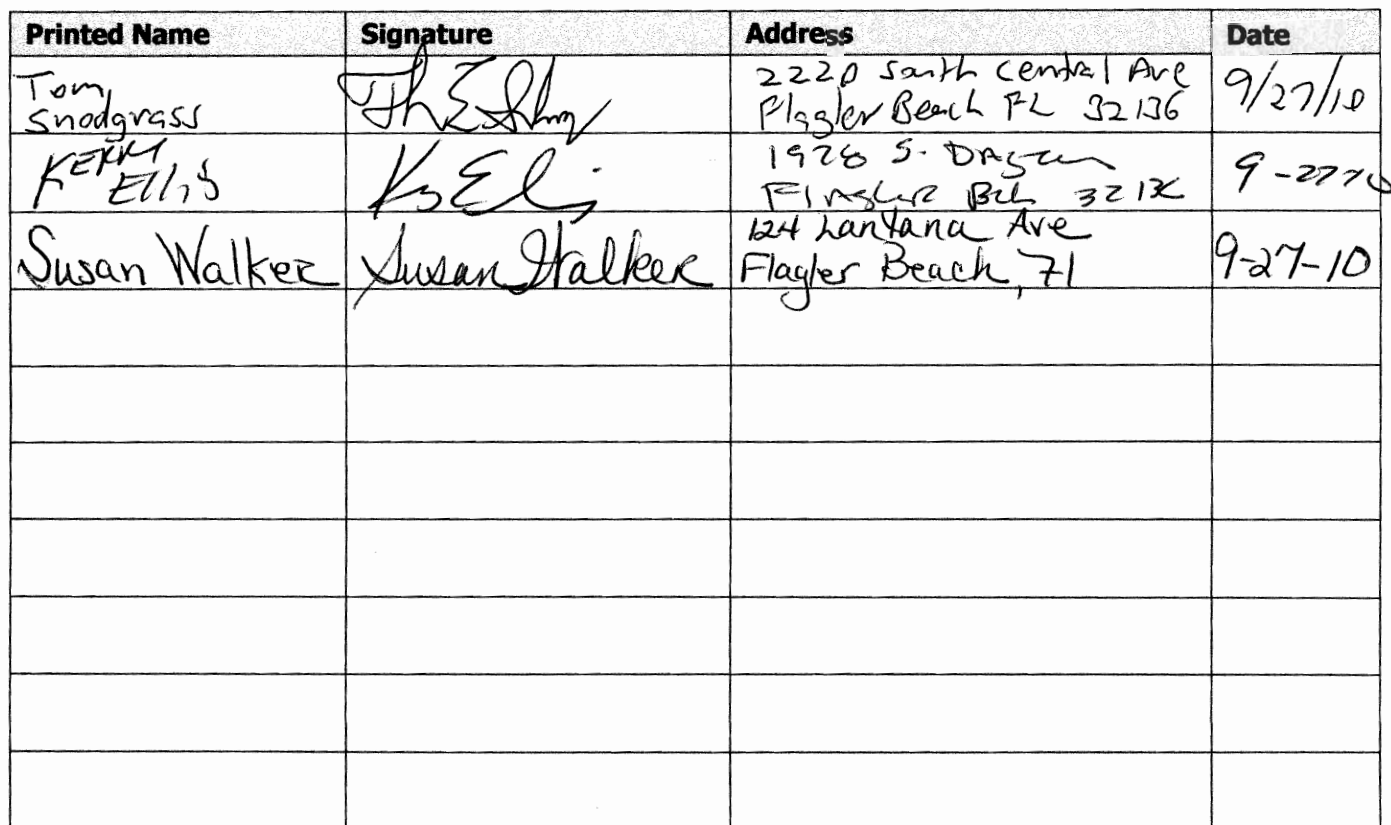 Printed Name Signature Address Date
Tom
Snodgrass
2220 South Central Ave
Flagler Beach FL 32136
9/27/10
Kerry
Ellis
1928 S.
Flagler Bch 32136
9-27-10
Susan Walker
Susan Walker
124 Lantana Ave
Flagler Beach, Fl
9-27-10